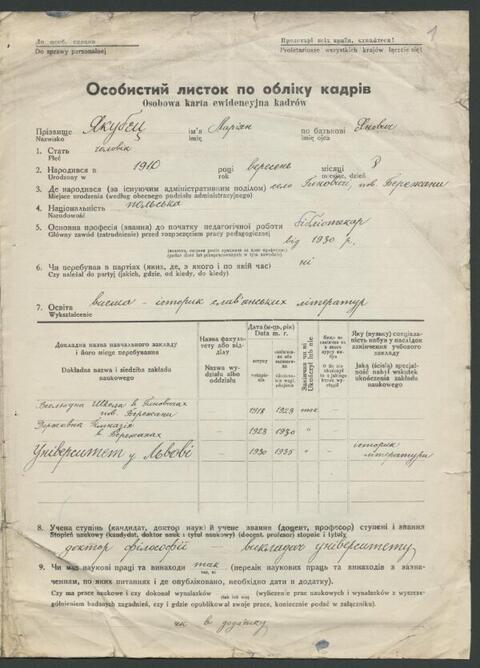 До особ. справи
Do sprawy personalnej
Пролетарі всіх країн, єднайтеся!
Proletariusze wszystkich krajów łączcie się!
1
Особистий листок по обліку кадрів
Osobowa karta ewidencyjna kadrów
Прізвище Якубец ім'я Мар'ян по батькові Янович
Nazwisko imię imię ojca
1. Стать чоловік
Płeć
2. Народився в 1910 році вересень місяці 8
Urodzony w rok m-ąc, dzień
3. Де народився (за існуючим адміністративним поділом) село Гиновичі, пов. Бережани
Miejsce urodzenia (według obecnego podziału administracyjnego)
4. Національність польська
Narodowość
5. Основна професія (звання) до початку педагогічної роботи бібліотекар
Główny zawód (zatrudnienie) przed rozpoczęciem pracy pedagogicznej від 1930 р.,
6. Чи перебував в партіях (яких, де, з якого і по якій час) ні
Czy należał do partyj (jakich, gdzie, od kiedy, do kiedy)
7. Освіта висша - історик слав'янських літератур
Wykształcenie
Докладна назва навчального закладу і його місце перебування
Dokładna nazwa i siedziba zakładu naukowego
Назва факультету або відділу
Nazwa wydziału albo oddziału
Дата (м-ць, рік)
Data m. r.
вступу
Закінчив чи ні
Ukończył lub nie
Яку (вузьку) спеціальність набув у наслідок закінчення учбового закладу
Jaką (ścisłą) specjalność nabył wskutek ukończenia zakładu
Вселюдна Школа в Гиновичах пов. Бережани - 1918 1923 так
Державна Гімназія в Бережанах - 1923 1930 "
Університет у Львові - 1930 1935 " історик літератури
8. Учена ступінь (кандидат, доктор наук) й учене звання (доцент, професор) ступені і звання
Stopień naukowy (kandydat, doktor nauk i tytuł naukowy) (docent, profesor) stopnie i tytuły
доктор філософії викладач університету
9. Чи має наукові праці та винаходи так (перелік наукових праць та винаходів з зазна-
так, ні
ченням, по яких питаннях і де опубліковано, необхідно дати в додатку).
Czy ma prace naukowe i czy dokonał wynalazków (wyliczenie prac naukowych i wynalazków z wyszcze-
tak lub nie
gólnieniem badanych zagadnień, czy i gdzie opublikował swoje prace, koniecznie podać w załączniku).
як в додатку